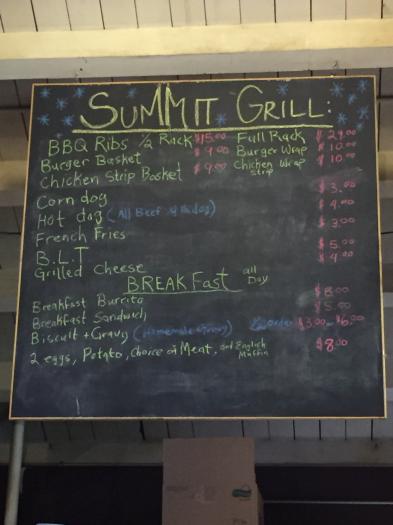 SUMMIT GRILL:
BBQ Ribs 1/2 Rack $15.00 Full Rack $29.00
Burger Basket $9.00 Burger Wrap $10.00
Chicken Strip Basket $9.00 Chicken Strip Wrap $10.00
Corn dog $3.00
Hot dog (All Beef dog) $4.00
French Fries $3.00
B.L.T $5.00
Grilled Cheese $4.00
BREAKFast all Day
Breakfast Burrito $8.00
Breakfast Sandwich $5.00
Biscuit + Gravy (Homemade Gravy) $3.00 - $6.00
2 eggs, Potato, Choice of Meat, and English Muffin $8.00